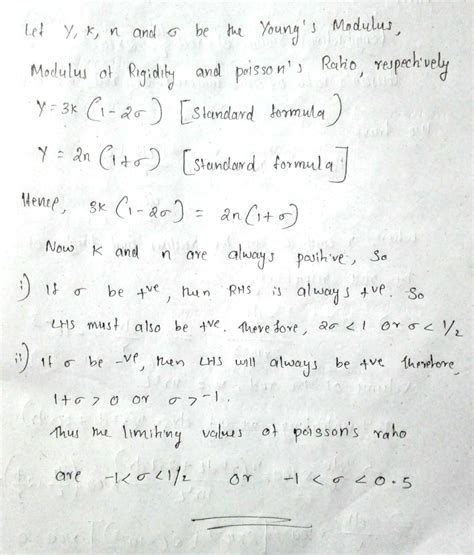 Let Y, K, n and σ be the Young's Modulus,
Modulus of Rigidity and poisson's Ratio, respectively
Y = 3K (1-2σ) [Standard formula)
Y = 2n (1+σ) [Standard formula]
Hence, 3K (1-2σ) = 2n(1+σ)
Now K and n are always positive, so
i) If σ be +ve, then RHS is always +ve. So
LHS must also be +ve. therefore, 2σ < 1 or σ < 1/2
ii) If σ be -ve, then LHS will always be +ve therefore,
1+σ > 0 or σ > -1.
Thus the limiting values of poisson's raho
are -1<σ<1/2 or -1 < σ < 0.5